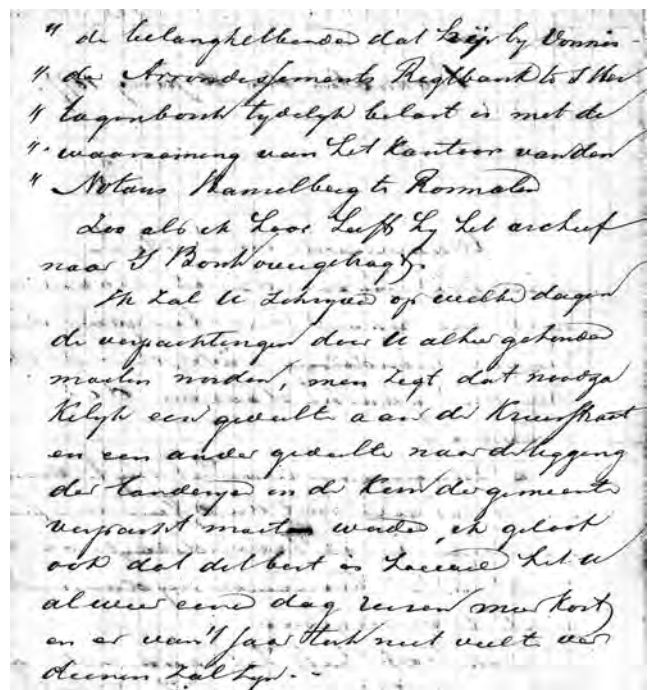 " de belanghebbenden dat hij by Vonnis
" der Arrondissements Regtbank te S Her
" togenbosch tydelyk belast is met de
" waarneming van het Kantoor van den
" Notaris te Rosmalen
Zoo als ik hoor heeft hy het archief
naar S Bosch overgebragt.
Ik zal U schryven op welke dagen
de verpachtingen door U alhier gehouden
moeten worden, men zegt dat noodza
kelyk een gedeelte aan de
en een ander gedeelte naar de ligging
der landeryen in de Kom der gemeente
verpacht moeten worden, ik geloof
ook dat dit best is hoewel het U
alweer eenen dag reisen meer kost
en er van 't jaar toch niet veel te ver
dienen zal zyn. -